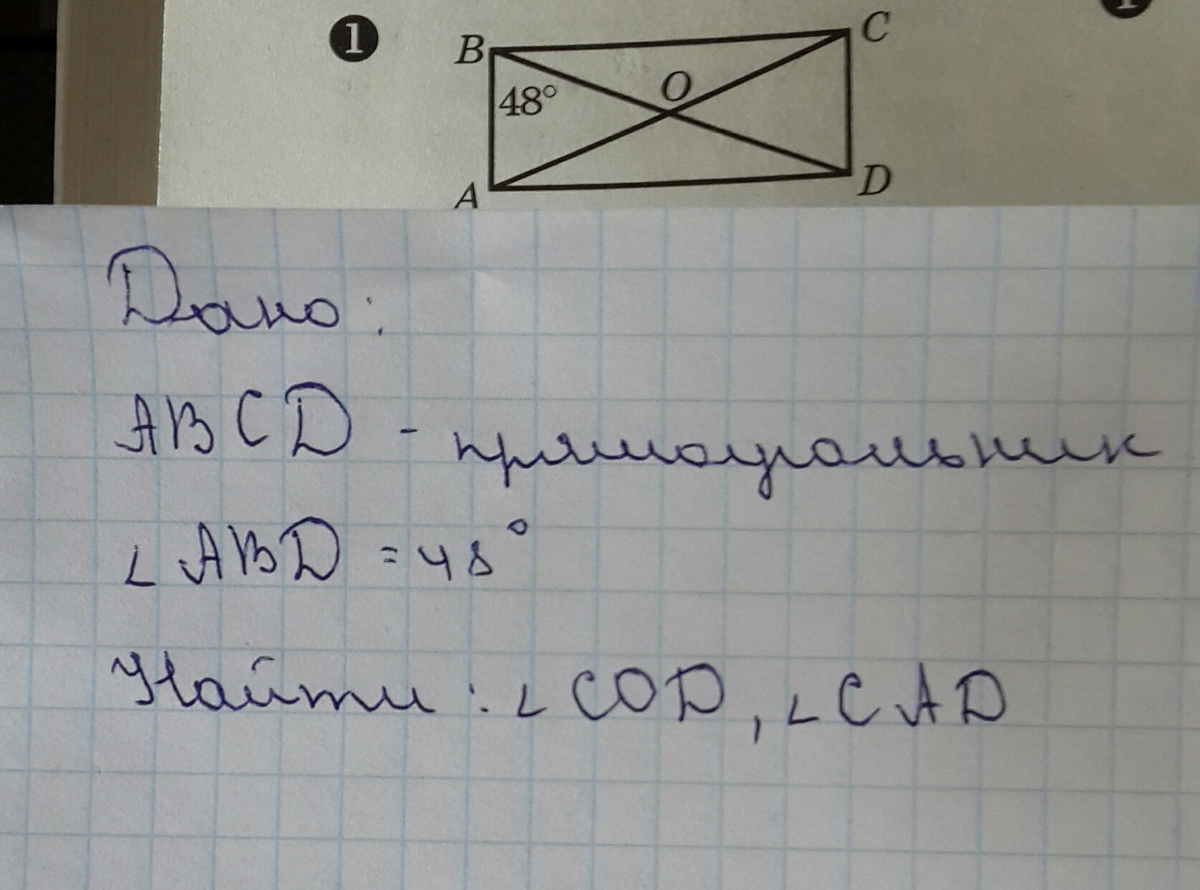 1
B
C
48°
O
A
D
Дано:
ABCD - прямоугольник
∠ ABD = 48°
Найти : ∠ COD, ∠ CAD